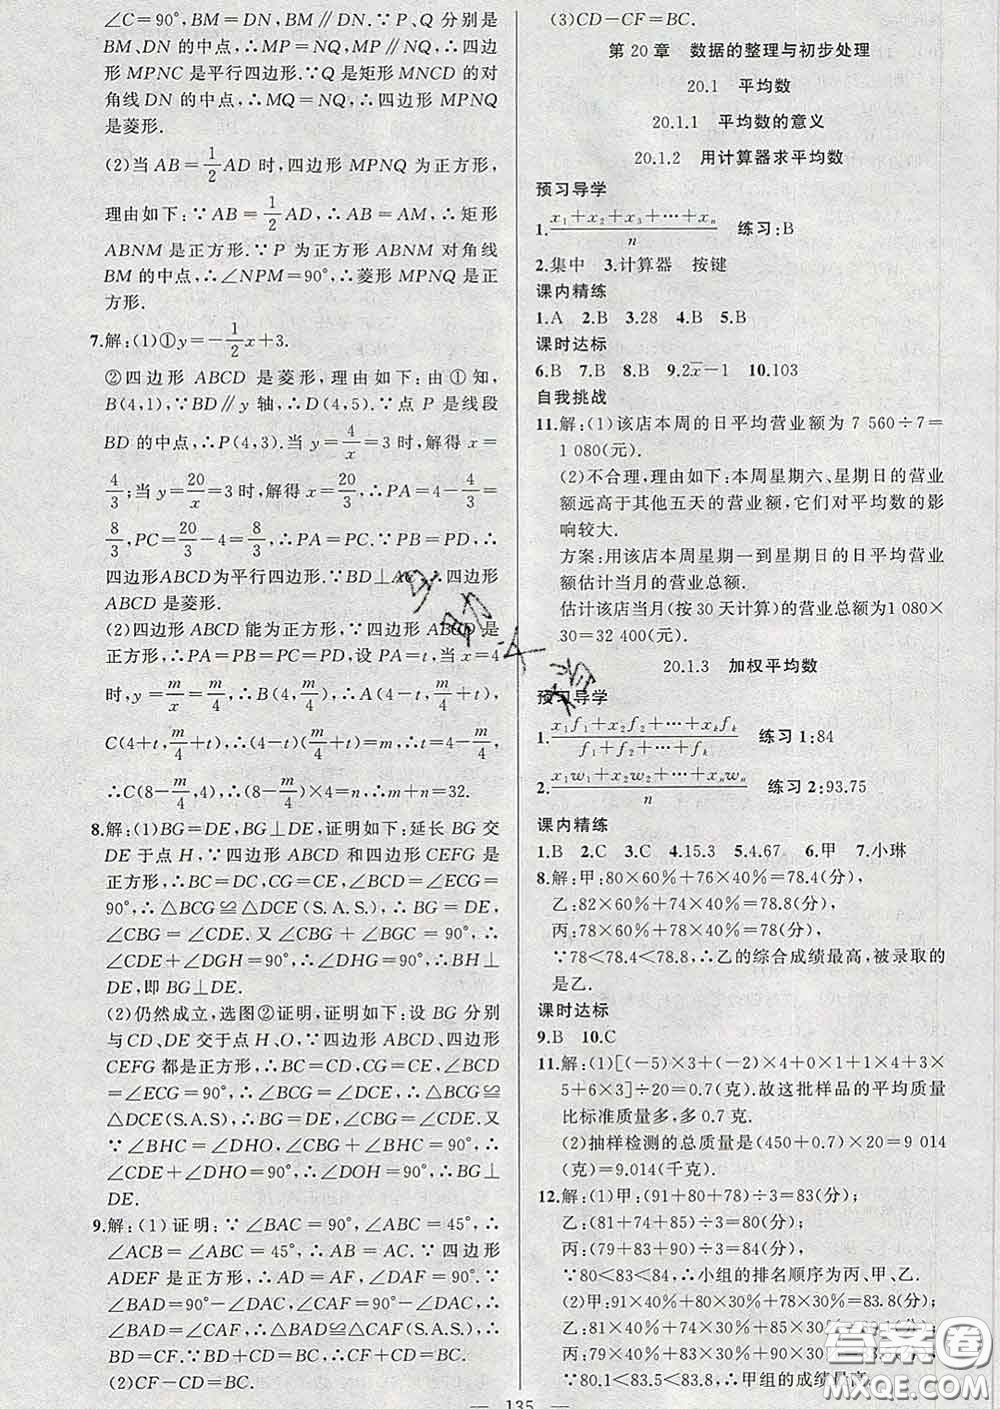 ∠C=90°,BM=DN.∵P、Q分别是
BM、DN的中点,∴MP=NQ,∴四边
形MPNC是平行四边形.∵Q是矩形MNCD的对
角线DN的中点,∴MQ=NQ,∴四边形MPNQ
是菱形.
(2)当AB=1/2AD时,四边形MPNQ为正方形,
理由如下:∵AB=1/2AD,∴AB=AM,∴矩形
ABNM是正方形.∵P为正方形ABNM对角线
BM的中点,∴∠NPM=90°,∴菱形MPNQ是正
方形.
7.解:(1)①y=-1/2x+3.
②四边形ABCD是菱形,理由如下:由①知,
B(4,1),∵BD∥y轴,∴D(4,5).∵点P是线段
BD的中点,∴P(4,3).当y=4/x=3时,解得x=
4/3;当y=20/x=3时,解得x=20/3,∴PA=4-4/3=
8/3,PC=20/3-4=8/3,∴PA=PC.∵PB=PD,∴
四边形ABCD为平行四边形.∵BD⊥AC,∴四边形
ABCD是菱形.
(2)四边形ABCD能为正方形,∵四边形ABCD是
正方形,∴PA=PB=PC=PD,设PA=t,当x=4
时,y=m/x=m/4,∴B(4,m/4),∴A(4-t,m/4+t),
C(4+t,m/4+t),∴(4-t)(m/4+t)=m,∴t=4-m/4,
∴C(8-m/4,4),∴(8-m/4)×4=n,∴m+n=32.
8.解:(1)BG=DE,BG⊥DE,证明如下:延长BG交
DE于点H,∵四边形ABCD和四边形CEFG是
正方形,∴BC=DC,CG=CE,∠BCD=∠ECG=
90°,∴△BCG≌△DCE(S.A.S.),∴BG=DE,
∠CBG=∠CDE.又∠CBG+∠BGC=90°,∴
∠CDE+∠DGH=90°,∴∠DHG=90°,∴BH⊥
DE,即BG⊥DE.
(2)仍然成立,选图②证明,证明如下:设BG分别
与CD、DE交于点H、O,∵四边形ABCD、四边形
CEFG都是正方形,∴BC=CD,CG=CE,∠BCD
=∠ECG=90°,∴∠BCG=∠DCE,∴△BCG≌
△DCE(S.A.S)∴BG=DE,∠CBG=∠CDE.又
∵∠BHC=∠DHO,∠CBG+∠BHC=90°,∴
∠CDE+∠DHO=90°,∴∠DOH=90°,∴BG⊥
DE.
9.解:(1)证明:∵∠BAC=90°,∠ABC=45°,∴
∠ACB=∠ABC=45°,∴AB=AC.∵四边形
ADEF是正方形,∴AD=AF,∠DAF=90°,∴
∠BAD=90°-∠DAC,∠CAF=90°-∠DAC,∴
∠BAD=∠CAF,∴△BAD≌△CAF(S.A.S.),∴
BD=CF.∵BD+CD=BC,∴CF+CD=BC.
(2)CF-CD=BC.
(3)CD-CF=BC.
第20章 数据的整理与初步处理
20.1 平均数
20.1.1 平均数的意义
20.1.2 用计算器求平均数
预习导学
1.(x₁+x₂+x₃+⋯+xₙ)/n 练习:B
2.集中 3.计算器 按键
课内精练
1.A 2.B 3.28 4.B 5.B
课时达标
6.B 7.B 8.B 9.2x̄-1 10.103
自我挑战
11.解:(1)该店本周的日平均营业额为7 560÷7=
1 080(元).
(2)不合理,理由如下:本周星期六、星期日的营业
额远高于其他五天的营业额,它们对平均数的影
响较大.
方案:用该店本周星期一到星期日的日平均营业
额估计当月的营业总额.
估计该店当月(按30天计算)的营业总额为1 080×
30=32 400(元).
20.1.3 加权平均数
预习导学
1.(x₁f₁+x₂f₂+⋯+xₖfₖ)/(f₁+f₂+⋯+fₖ) 练习1:84
2.(x₁w₁+x₂w₂+⋯+xₙwₙ)/n 练习2:93.75
课内精练
1.B 2.C 3.C 4.15.3 5.4.67 6.甲 7.小琳
8.解:甲:80×60%+76×40%=78.4(分),
乙:82×60%+74×40%=78.8(分),
丙:78×60%+78×40%=78(分),
∵78<78.4<78.8,∴乙的综合成绩最高,被录取的
是乙.
课时达标
9.B 10.C
11.解:(1)[(-5)×3+(-2)×4+0×1+1×4+3×
5+6×3]÷20=0.7(克).故这批样品的平均质量
比标准质量多,多0.7克.
(2)抽样检测的总质量是(450+0.7)×20=9 014
(克)=9.014(千克).
12.解:(1)甲:(91+80+78)÷3=83(分),
乙:(81+74+85)÷3=80(分),
丙:(79+83+90)÷3=84(分),
∵80<83<84,∴小组的排名顺序为丙、甲、乙.
(2)甲:91×40%+80×30%+78×30%=83.8(分),
乙:81×40%+74×30%+85×30%=80.1(分),
丙:79×40%+83×30%+90×30%=83.5(分),
∵80.1<83.5<83.8,∴甲组的成绩最高.
— 135 —
答案圈
MXQE.COM